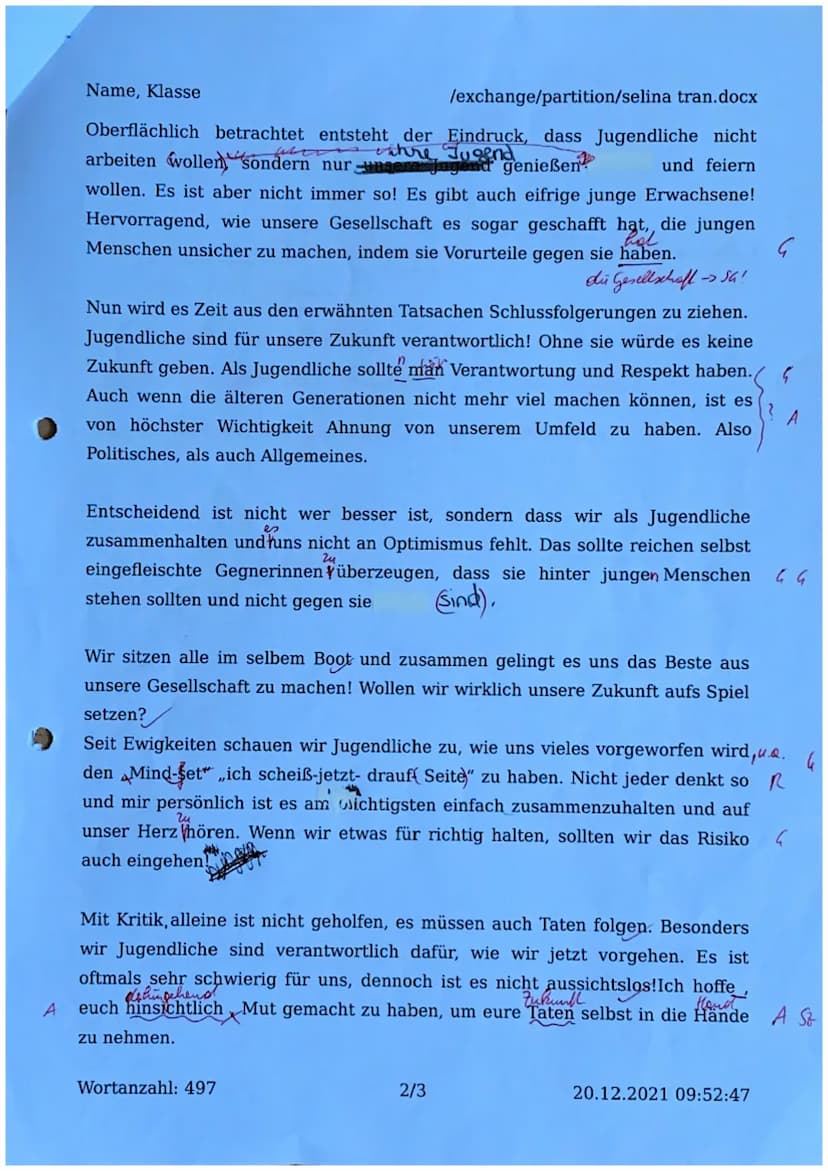 Name, Klasse /exchange/partition/selina tran.docx
Oberflächlich betrachtet entsteht der Eindruck, dass Jugendliche nicht
ihre Jugend
arbeiten wollen, sondern nur unsere Jugend genießen und feiern
wollen. Es ist aber nicht immer so! Es gibt auch eifrige junge Erwachsene!
Hervorragend, wie unsere Gesellschaft es sogar geschafft hat, die jungen
hat
Menschen unsicher zu machen, indem sie Vorurteile gegen sie haben. G
die Gesellschaft → SG!
Nun wird es Zeit aus den erwähnten Tatsachen Schlussfolgerungen zu ziehen.
Jugendliche sind für unsere Zukunft verantwortlich! Ohne sie würde es keine
n wir
Zukunft geben. Als Jugendliche sollte man Verantwortung und Respekt haben. G
Auch wenn die älteren Generationen nicht mehr viel machen können, ist es ? A
von höchster Wichtigkeit Ahnung von unserem Umfeld zu haben. Also
Politisches, als auch Allgemeines.
Entscheidend ist nicht wer besser ist, sondern dass wir als Jugendliche
es
zusammenhalten und uns nicht an Optimismus fehlt. Das sollte reichen selbst
zu
eingefleischte Gegnerinnen überzeugen, dass sie hinter jungen Menschen G G
stehen sollten und nicht gegen sie (sind).
Wir sitzen alle im selbem Boot und zusammen gelingt es uns das Beste aus
unsere Gesellschaft zu machen! Wollen wir wirklich unsere Zukunft aufs Spiel
setzen?
Seit Ewigkeiten schauen wir Jugendliche zu, wie uns vieles vorgeworfen wird, u.a. G
den „Mind-Set“ „ich scheiß-jetzt- drauf( Seite)“ zu haben. Nicht jeder denkt so R
und mir persönlich ist es am wichtigsten einfach zusammenzuhalten und auf
zu
unser Herz hören. Wenn wir etwas für richtig halten, sollten wir das Risiko G
auch eingehen!
Mit Kritik, alleine ist nicht geholfen, es müssen auch Taten folgen. Besonders
wir Jugendliche sind verantwortlich dafür, wie wir jetzt vorgehen. Es ist
oftmals sehr schwierig für uns, dennoch ist es nicht aussichtslos!Ich hoffe,
dahingehend Zukunft Hand
A euch hinsichtlich, Mut gemacht zu haben, um eure Taten selbst in die Hände A Sz
zu nehmen.
Wortanzahl: 497 2/3 20.12.2021 09:52:47